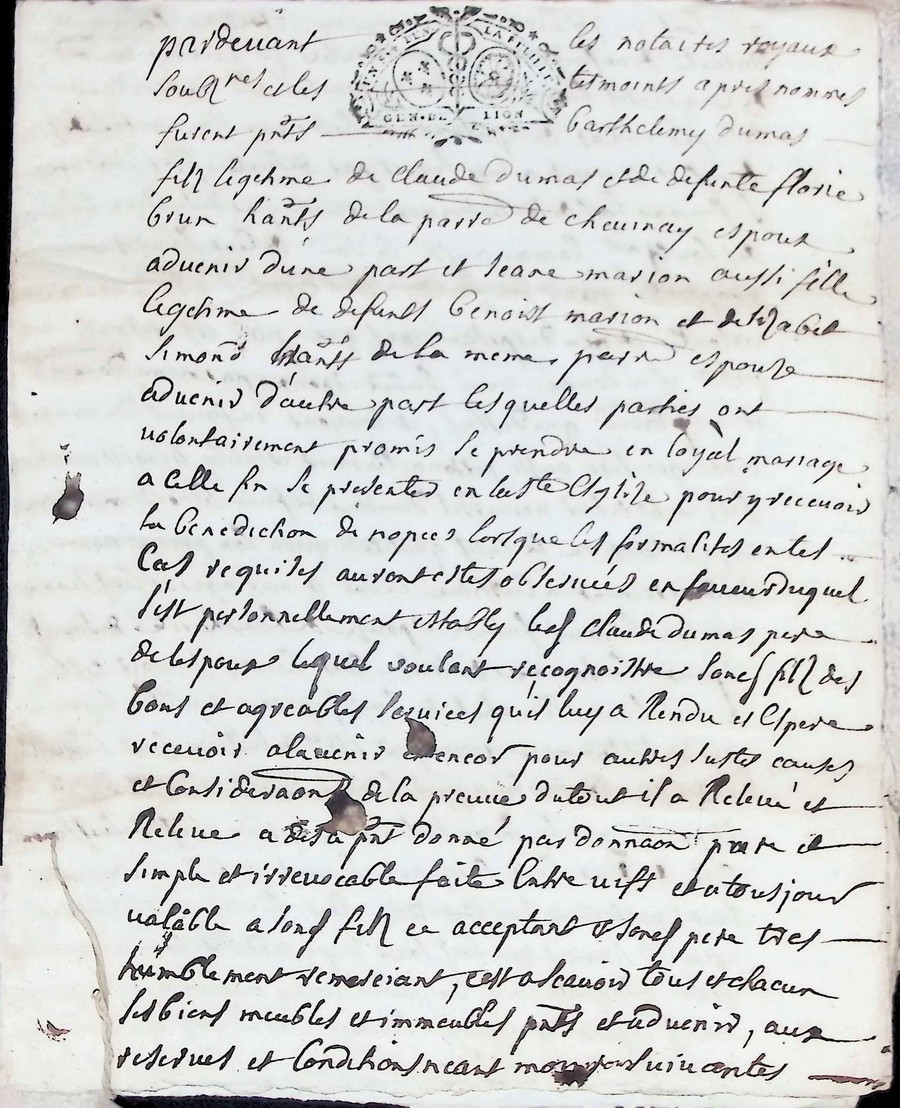 pardevant les notaires royaux
soubznes et les tesmoints apres nommes
GEN. DE LION
furent pnts Barthelemy dumas
filz legetime de claude dumas et de defunte florie
brun hants de la parre de cheurnay espoux
aduenir d'une part et Jeane marion aussi fille
legetime de defunts benoist marion et delizabet
simond hants de la meme parre espouze
aduenir d'autre part lesquelles parties ont
volontairement promis se prendre en loyal mariage
a celle fin se presenter en la ste Esglize pour y recevoir
la benediction de nopces lorsque les formalites en tel
Cas requises auront estes observées en faveur duquel
s'est personnellement estably led claude dumas pere
de lespoux lequel voulant recognoistre sond filz des
bons et agreables services quil luy a Rendu et Espere
recevoir a laduenir encor pour autres Justes causes
et Consideraons de la preuve du tout il a Relevé et
Releve a des a pnt donné par donnaon pure et
simple et irrevocable faite Entre vifs et a tousjour
valable a sond filz ce acceptant et sond pere tres
humblement remerciant, c'est a scavoir tous et chacun
ses biens meubles et immeubles pnts et aduenir, aux
reserves et Conditions neant moins suivantes